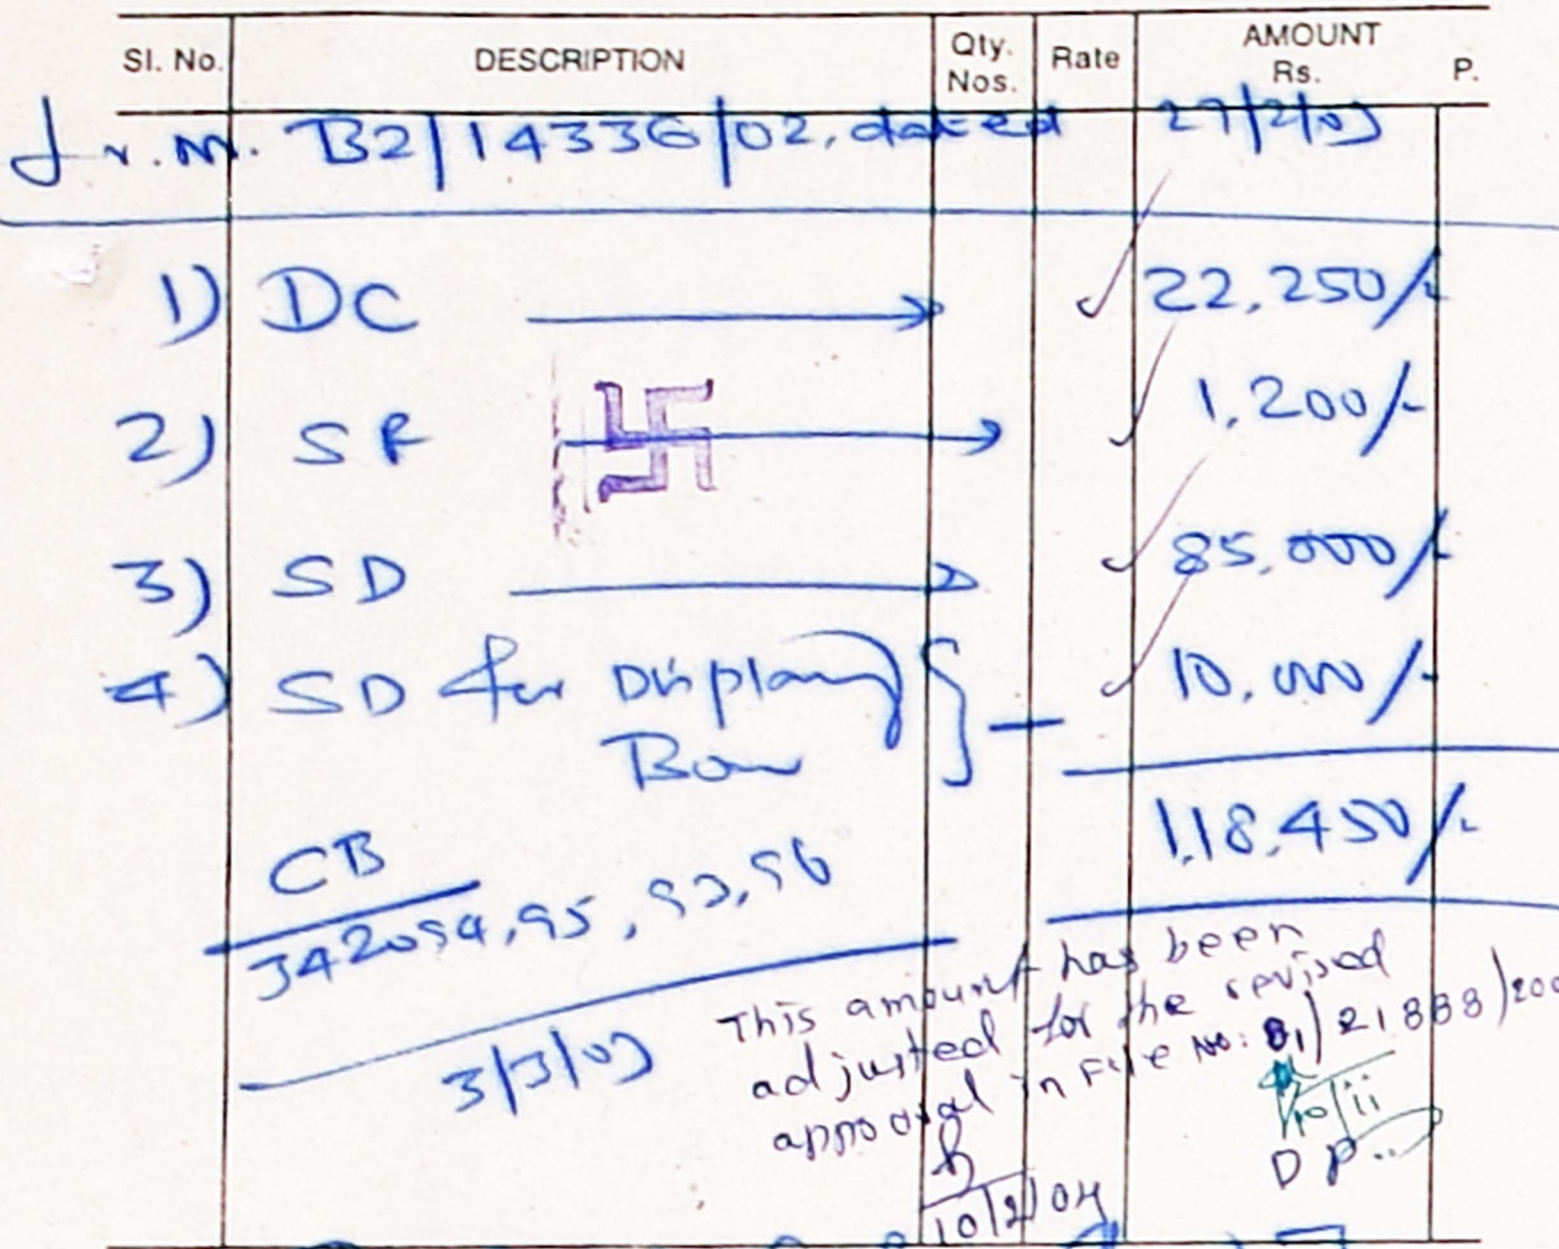 Sl. No. DESCRIPTION Qty. Nos. Rate AMOUNT Rs. P.
Lr. No. B2/14336/02, dated 27/2/03
1) DC 22,250/-
2) SF 1,200/-
3) SD 85,000/-
4) SD for Display 10,000/-
1,18,450/-
CB
342094, 95, 93, 96
3/3/03
This amount has been
adjusted for the revised
approval in File No: B1/21888/200
10/ii
DP..
10/2/04